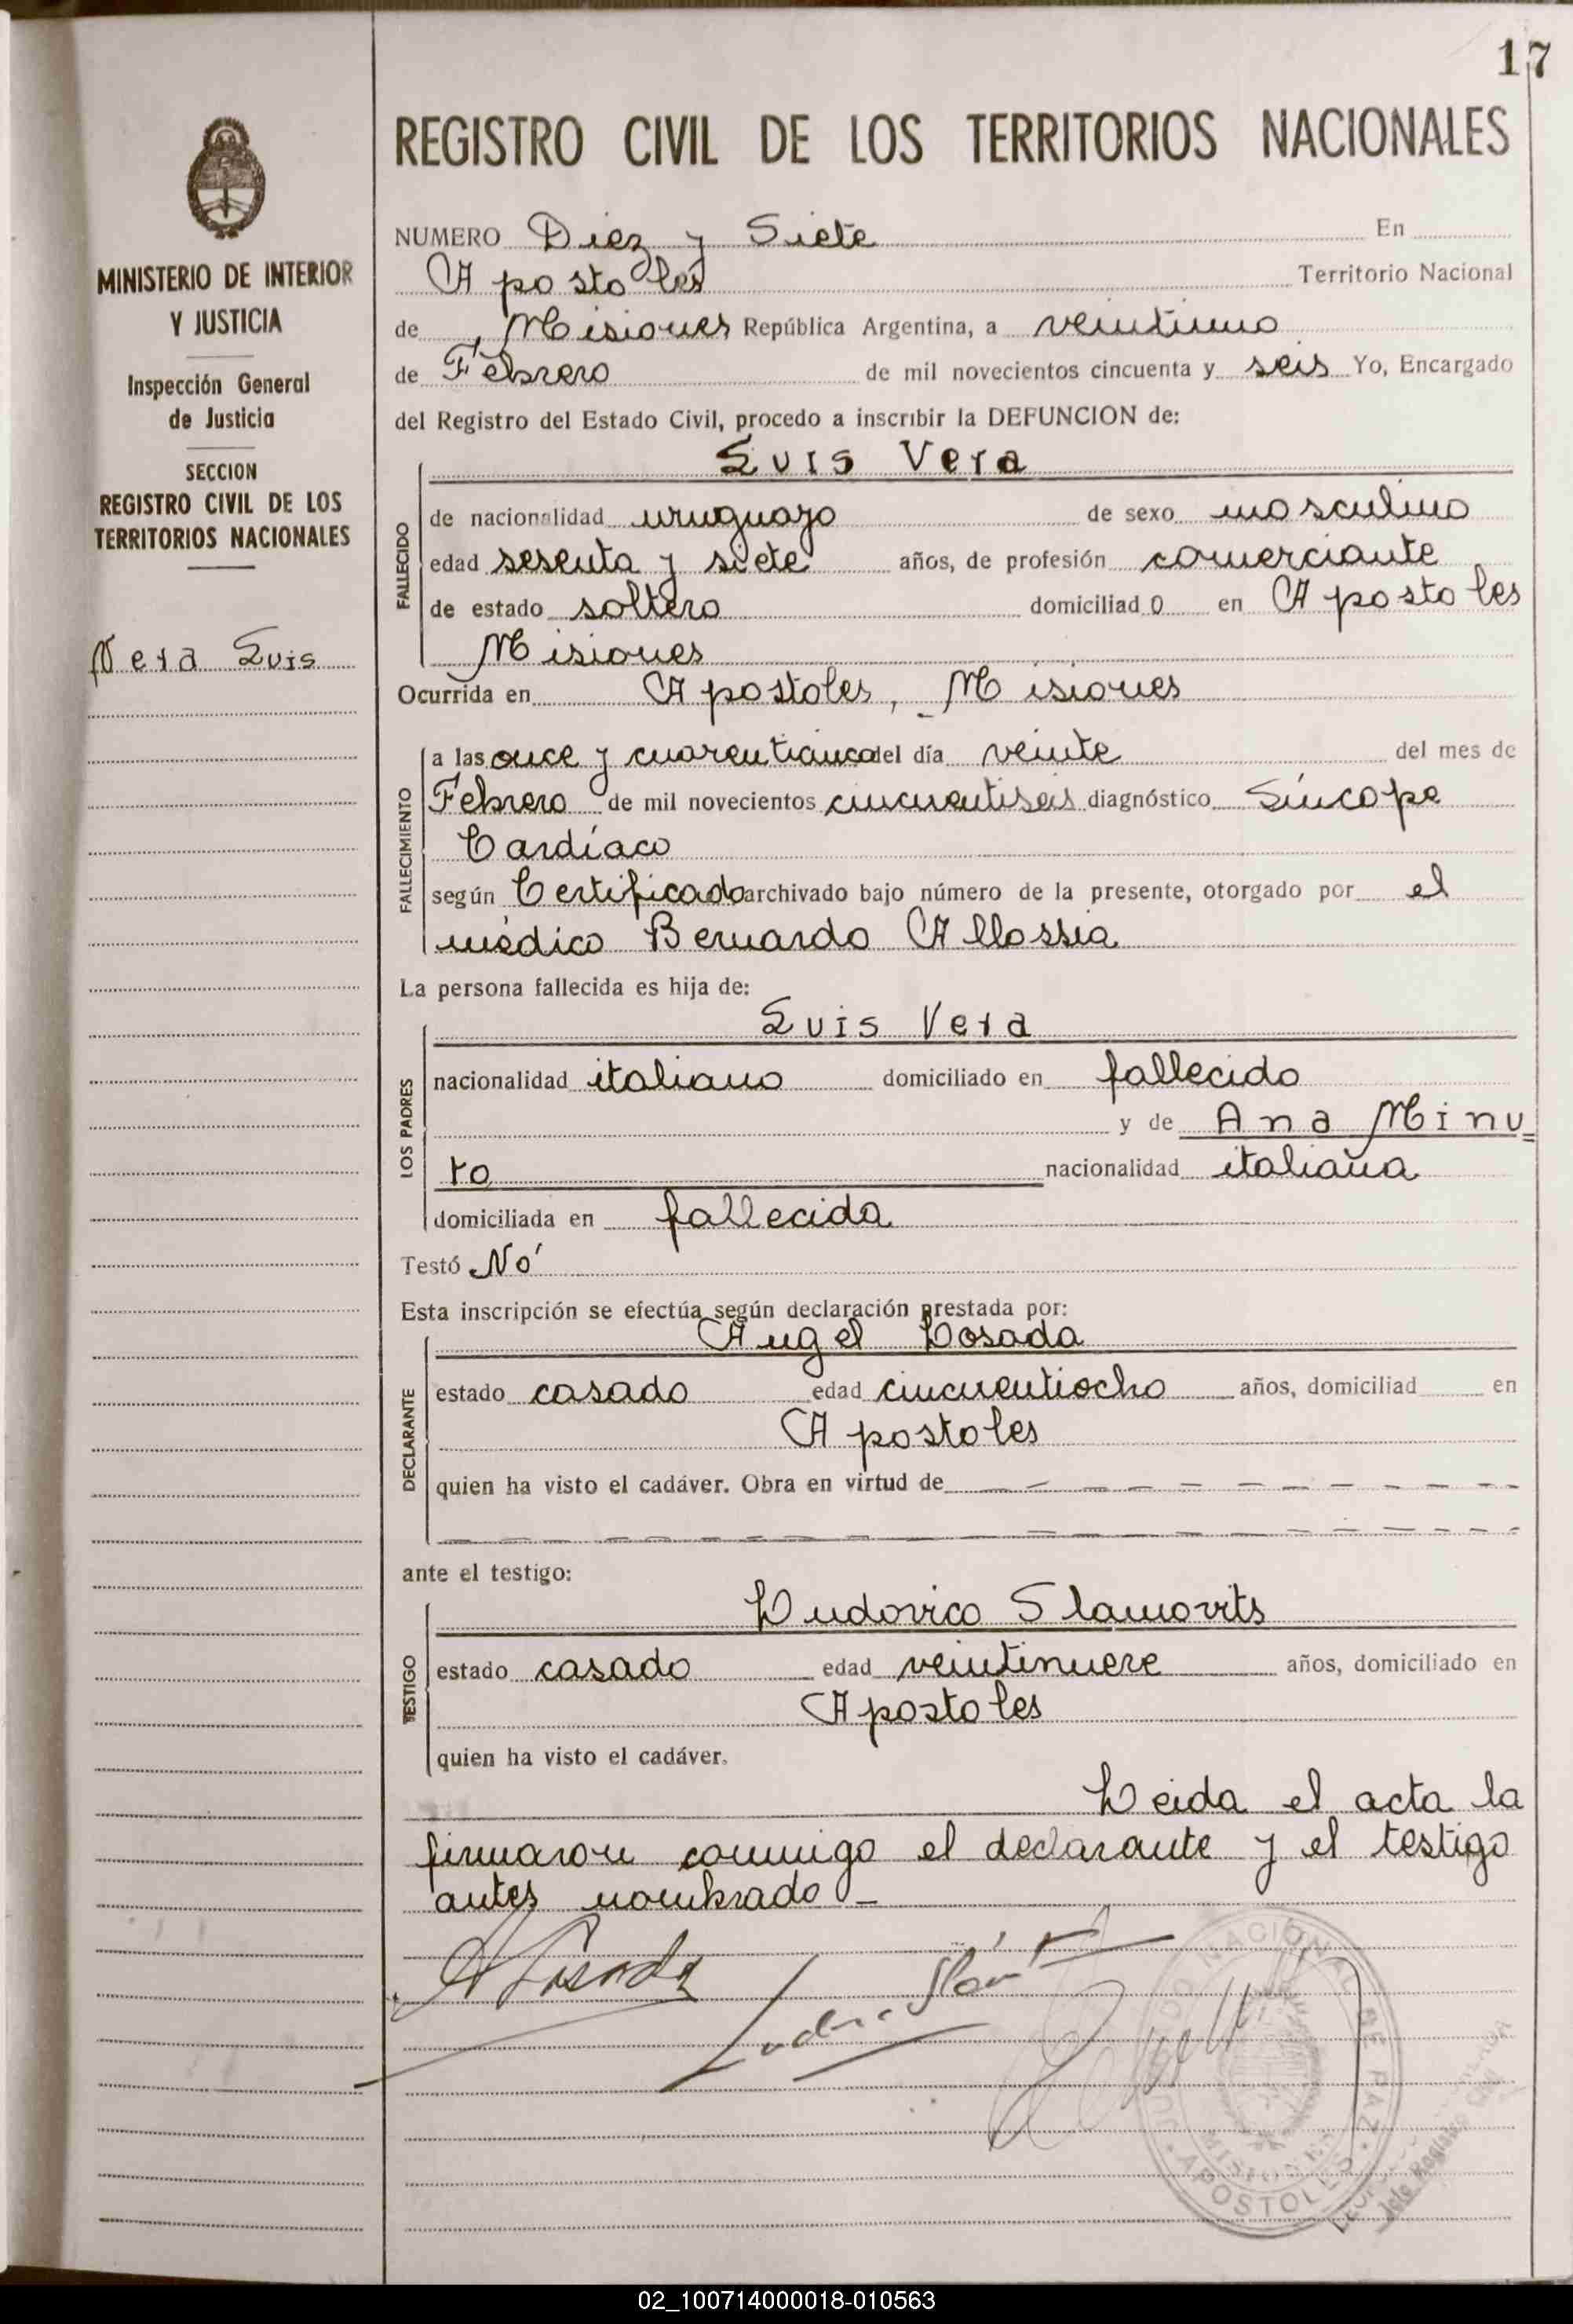 17
REGISTRO CIVIL DE LOS TERRITORIOS NACIONALES
MINISTERIO DE INTERIOR
Y JUSTICIA
Inspección General
de Justicia
SECCION
REGISTRO CIVIL DE LOS
TERRITORIOS NACIONALES
Vera Luis
NUMERO Diez y Siete En
Apostoles Territorio Nacional
de Misiones República Argentina, a veintiuno
de Febrero de mil novecientos cincuenta y seis Yo, Encargado
del Registro del Estado Civil, procedo a inscribir la DEFUNCION de:
Luis Vera
FALLECIDO
de nacionalidad uruguayo de sexo masculino
edad sesenta y siete años, de profesión comerciante
de estado soltero domiciliado en Apostoles
Misiones
Ocurrida en Apostoles, Misiones
FALLECIMIENTO
a las once y cuarenticinco del día veinte del mes de
Febrero de mil novecientos cincuentiseis diagnóstico Síncope
Cardíaco
según Certificado archivado bajo número de la presente, otorgado por el
médico Bernardo Allossia
La persona fallecida es hija de:
Luis Vera
LOS PADRES
nacionalidad italiano domiciliado en fallecido
y de Ana Minu=
to nacionalidad italiana
domiciliada en fallecida
Testó No
Esta inscripción se efectúa según declaración prestada por:
Angel Losada
DECLARANTE
estado casado edad cincuentiocho años, domiciliad en
Apostoles
quien ha visto el cadáver. Obra en virtud de
ante el testigo:
Ludovico Slamovits
TESTIGO
estado casado edad veintinueve años, domiciliado en
Apostoles
quien ha visto el cadáver.
Leida el acta la
firmaron conmigo el declarante y el testigo
antes nombrado -
A Losada
JUZGADO NACIONAL DE PAZ
MISIONES
APOSTOLES
Jefe Registro Civil
02_100714000018-010563